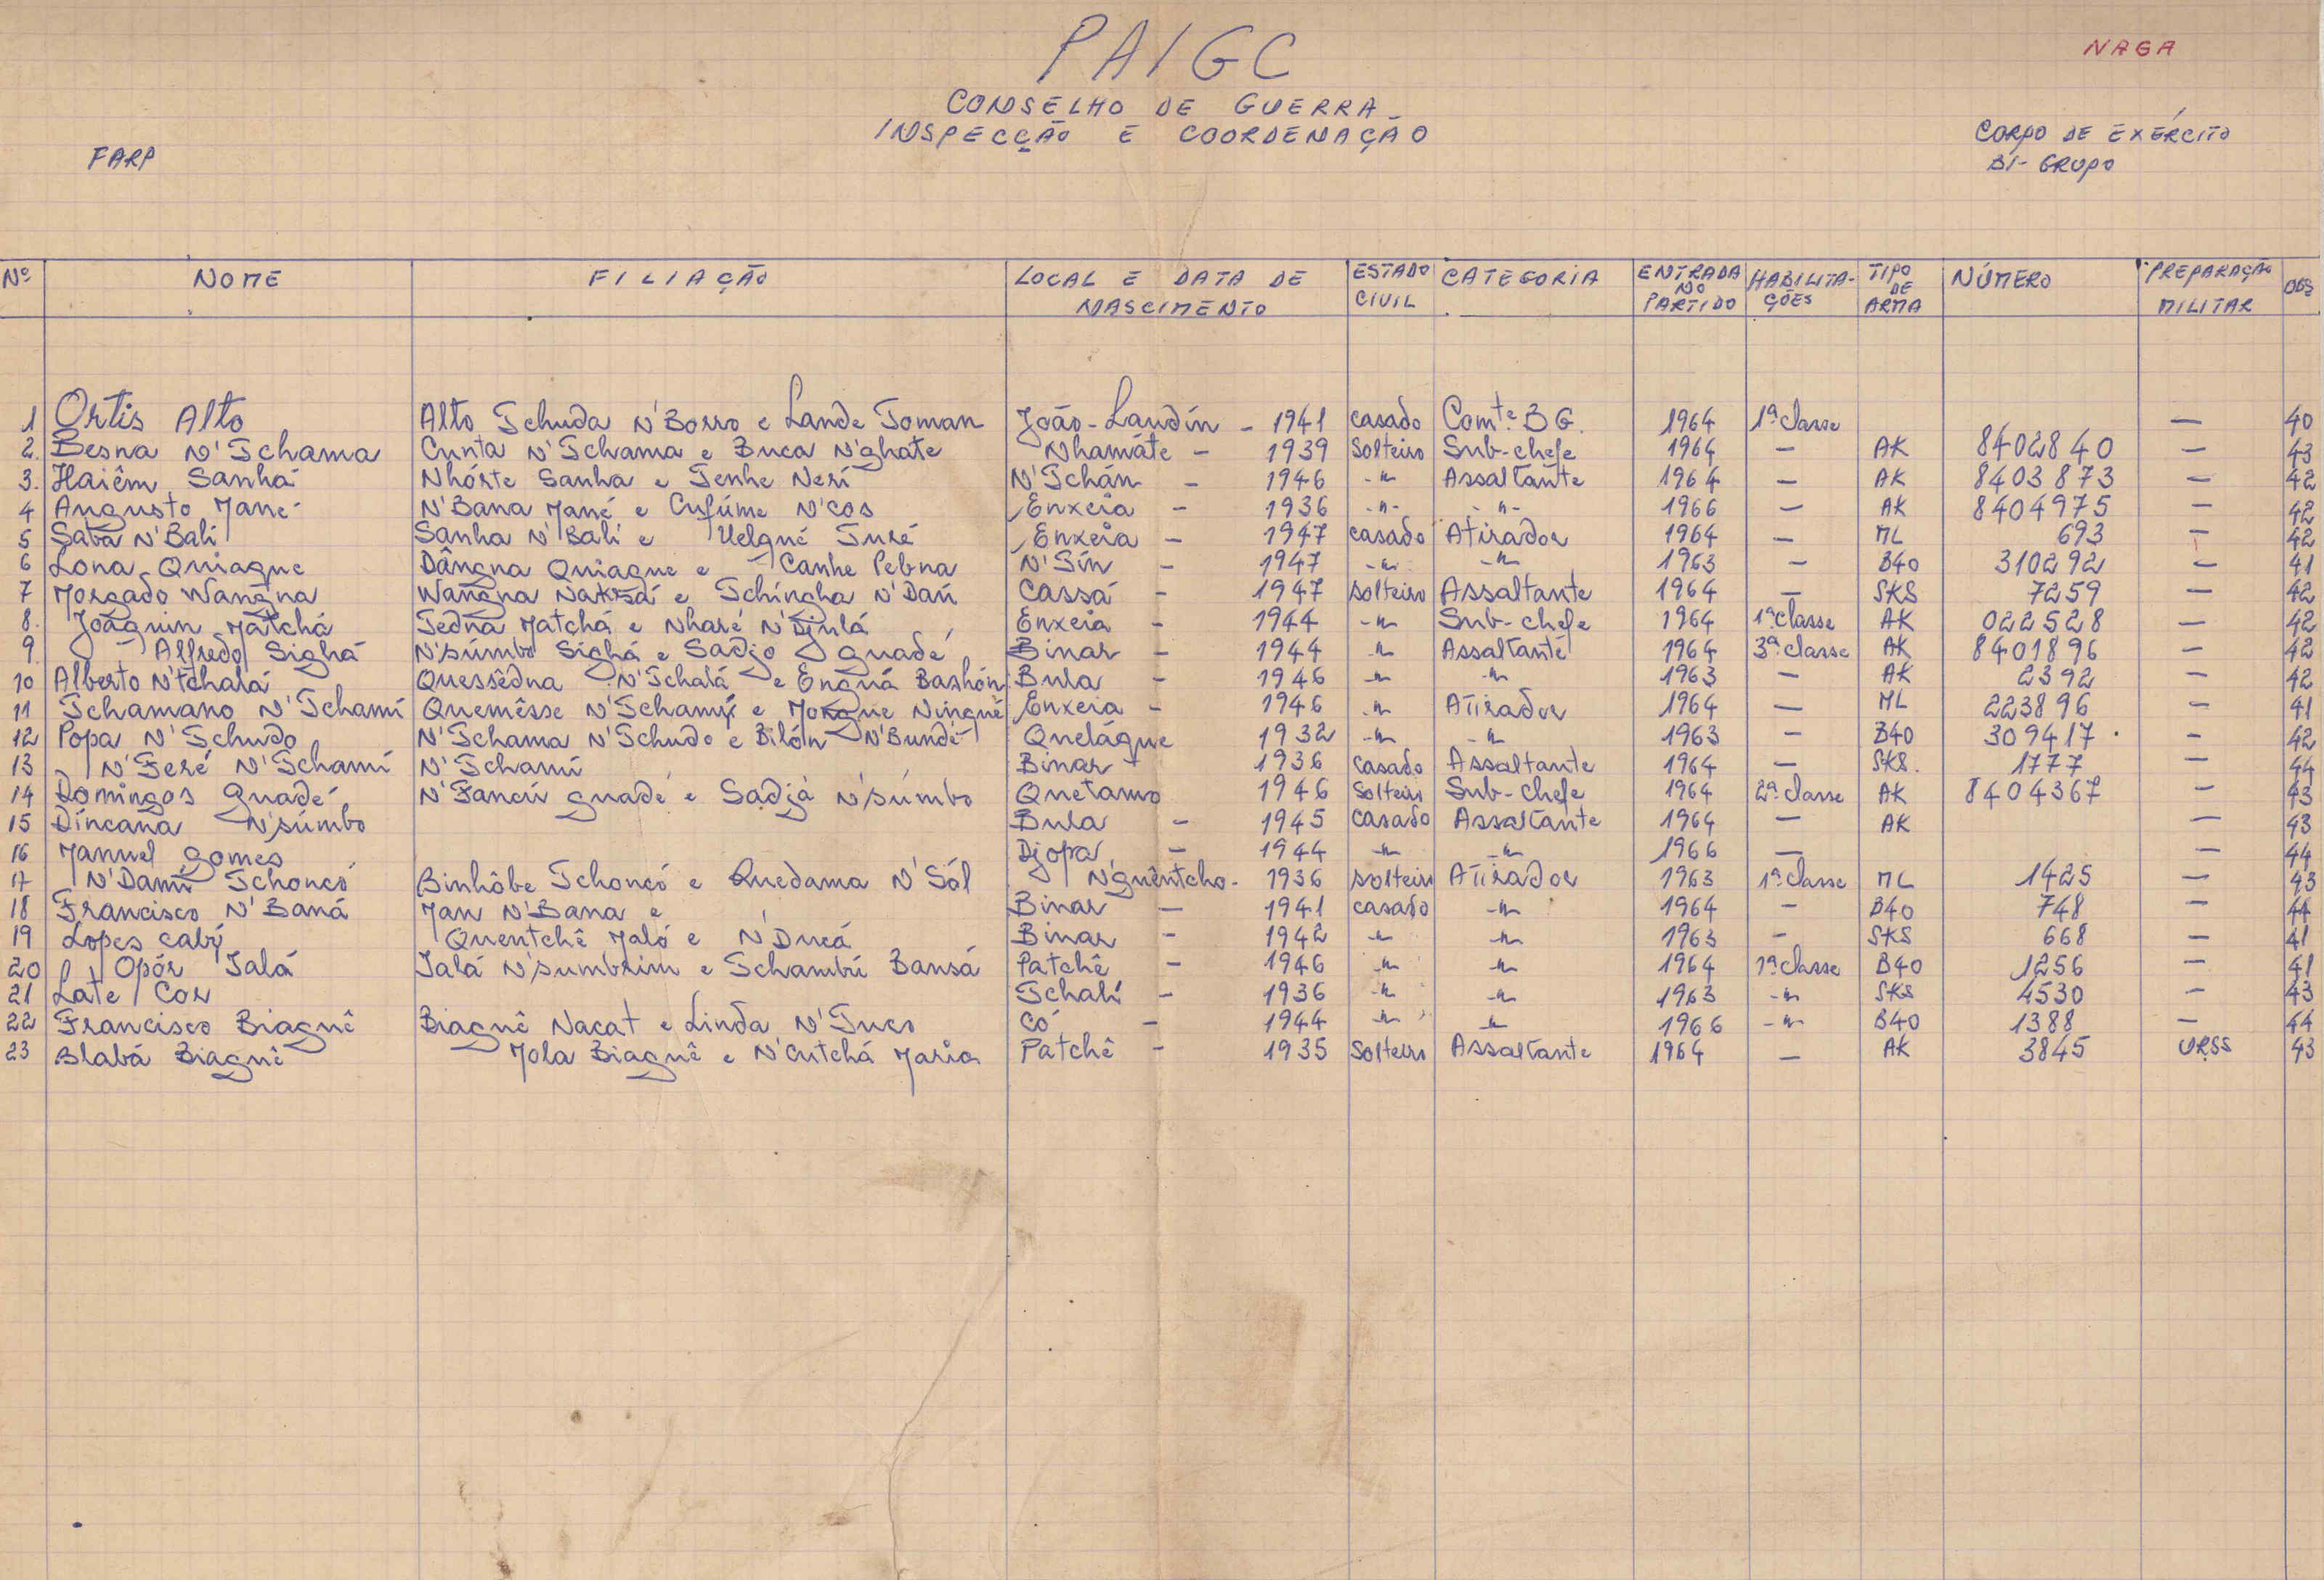 PAIGC
NAGA
CONSELHO DE GUERRA
INSPECÇÃO E COORDENAÇÃO
FARP
CORPO DE EXÉRCITO
BI-GRUPO
Nº NOME FILIAÇÃO LOCAL E DATA DE NASCIMENTO ESTADO CIVIL CATEGORIA ENTRADA NO PARTIDO HABILITA-ÇÕES TIPO DE ARMA NÚMERO PREPARAÇÃO MILITAR OBS
1 Ortis Alto Alto Tchuda N'Borro e Lande Toman João-Landín - 1941 casado Comte. BG. 1964 1ª classe — 40
2. Besna N'Tchama Cunta N'Tchama e Buca N'ghate Nhamáte - 1939 Solteiro Sub-chefe 1964 — AK 8402840 — 43
3. Haiêm Sanhá Nhórte Sanha e Tenhe Nerí N'Tchán - 1946 -"- Assaltante 1964 — AK 8403873 — 42
4 Augusto Mané N'Bana Mané e Cufúme N'cos Enxeia - 1936 -"- -"- 1966 — AK 8404975 — 42
5 Sabá N'Bali Sanha N'Bali e Uelgué Turé Enxeia - 1947 casado Atirador 1964 — ML 693 — 42
6 Lona Quiague Dângna Quiague e Canhe Pebna N'Sín - 1947 -"- -"- 1963 — B40 310292 — 41
7 Morgado Wangna Wangna e Tchíngha N'Dan Cassá - 1947 solteiro Assaltante 1964 — SKS 7259 — 42
8. Joãquin Matchá Tedna Matchá e Nharé N'Djulá Enxeia - 1944 -"- Sub-chefe 1964 1ª classe AK 022528 — 42
9 Alfredo Sighá N'súmbo Sighá e Sadjo guadé Binar - 1944 -"- Assaltante 1964 3ª classe AK 8401896 — 42
10 Alberto N'tchalá Quessêdna N'Tchalá e Enguá Bashón Bula - 1946 -"- -"- 1963 — AK 2392 — 42
11 Tchamano N'Tchamí Quemêsse N'Tchamý e Morgue Ningué Enxeia - 1946 -"- Atirador 1964 — ML 223896 — 41
12 Popa N'Tchudo N'Tchama N'Tchudo e Bilón N'Bundé Quelágue 1932 -"- -"- 1963 — B40 309417 — 42
13 N'Feré N'Tchamí N'Tchamí Binar - 1936 casado Assaltante 1964 — SKS. 1777 — 44
14 Domingos Guadé N'Fancú guadé e Sadjá N'súmbo Quetamo 1946 Solteiro Sub-chefe 1964 2ª classe AK 8404367 — 43
15 Dincana N'súmbo Bula - 1945 casado Assaltante 1964 — AK — 43
16 Manuel gomes Djopá - 1944 -"- -"- 1966 — — 44
17 N'Damí Tchoncó Binhôbe Tchoncó e Quedama N'Sól N'guêntcho- 1936 solteiro Atirador 1963 1ª classe ML 1425 — 43
18 Francisco N'Baná Man N'Bana e Binar — 1941 casado -"- 1964 — B40 748 — 44
19 Lopes cabý Quentchê Maló e N'Ducá Binar - 1942 -"- -"- 1963 — SKS 668 — 41
20 Opór Ialá Ialá N'sumbrim e Tchambú Bansá Patchê - 1946 -"- -"- 1964 1ª classe B40 1256 — 41
21 Late Cor Tchalí - 1936 -"- -"- 1963 -"- SKS 4530 — 43
22 Francisco Biaguê Biaguê Nacat e Linda N'Tuco Có - 1944 -"- -"- 1966 -"- B40 1388 — 44
23 Blabá Biaguê Mola Biaguê e N'cutchá Maria Patchê - 1935 Solteiro Assaltante 1964 — AK 3845 URSS 43